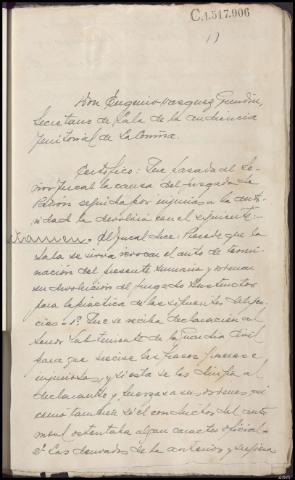 C.1.517.906
Don Eugenio Vasquez Gundin,
Secretario de Sala de la audiencia
Territorial de La Coruña.
Certifico: Que pasada al Se-
ñor fiscal la causa del juzgado de
Padron seguida por injurias a la auto-
ridad la devolvió con el siguiente:
dictamen. El fiscal dice: Procede que la
Sala se sirva revocar el auto de termi-
nacion del presente sumario y ordenar
su devolucion al juzgado Instructor
para la practica de las siguientes diligen-
cias: 1º Que se reciba declaración al
Señor 1er teniente de la Guardia Civil
para que precise las frases graves e
injuriosas, y si esta se las dirigia al
declarante y fuerzas a sus ordenes asi
como tambien si el conductor del auto
movil ostentaba algun caracter oficial.
2º Las demas de la anterior y